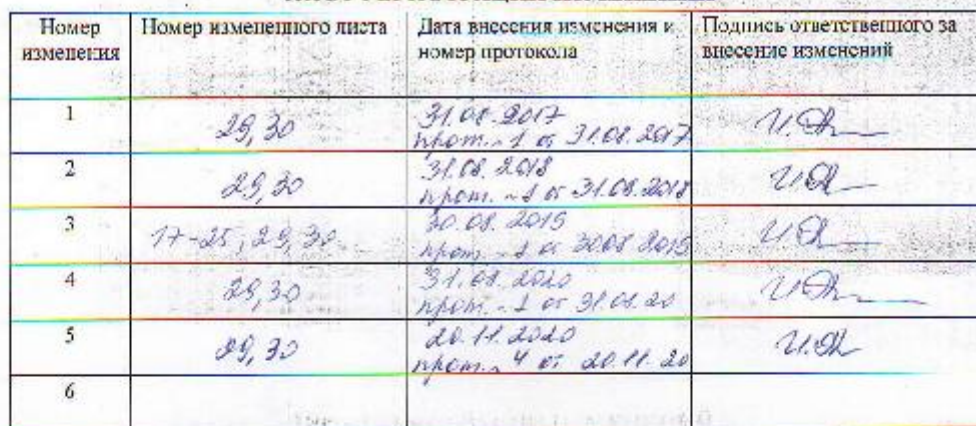 Номер изменения
Номер измененного листа
Дата внесения изменения и номер протокола
Подпись ответственного за внесение изменений
1
29,30
31.08.2017
прот. №1 от 31.08.2017
2
29,30
31.08.2018
прот. №1 от 31.08.2018
3
17-25, 29, 30
30.08.2019
прот. №1 от 30.08.2019
4
29,30
31.08.2020
прот. №1 от 31.08.20
5
29,30
20.11.2020
прот. №4 от 20.11.20
6